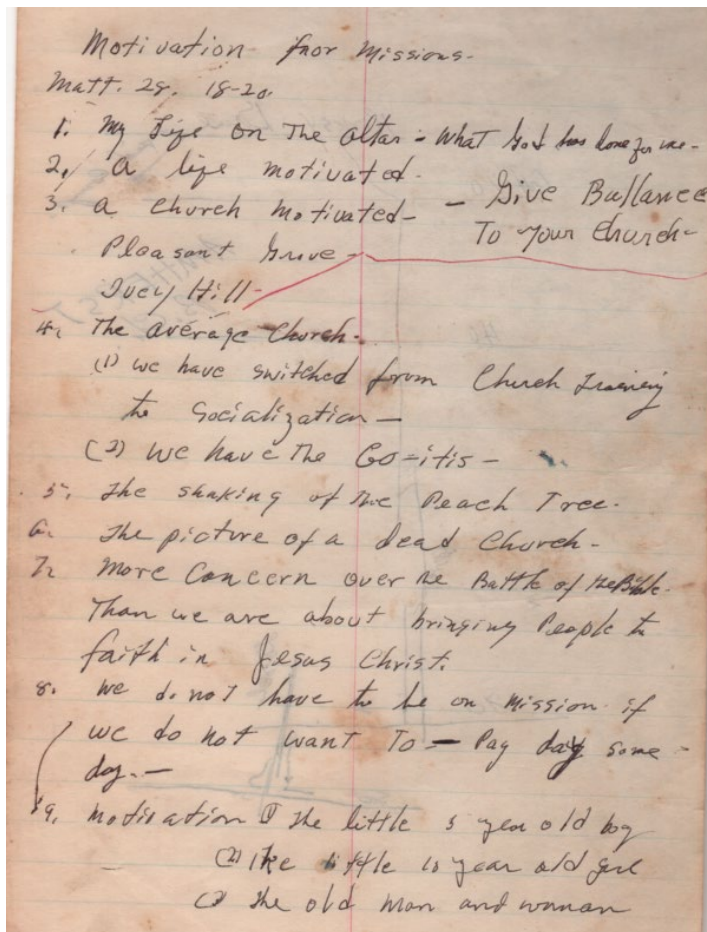 Motivation fror Missions-
Matt. 28. 18-20.
1. My Life on The altar - What God has done for me-
2. a life motivated-
3. a church motivated- - Give Ballance
To your Church-
Pleasant Grove-
Ivey Hill-
4. The average Church-
(1) we have switched from Church Training
to Socialization-
(2) we have The Go-itis-
5. The shaking of The Peach Tree.
6. The picture of a dead Church-
7. More Concern over the Battle of the Bible-
Than we are about bringing People to
faith in Jesus Christ.
8. we do not have to be on mission if
we do not want To - Pay day some-
day.-
9. motivation (1) The little 5 year old boy
(2) The little 10 year old girl
(3) The old man and woman